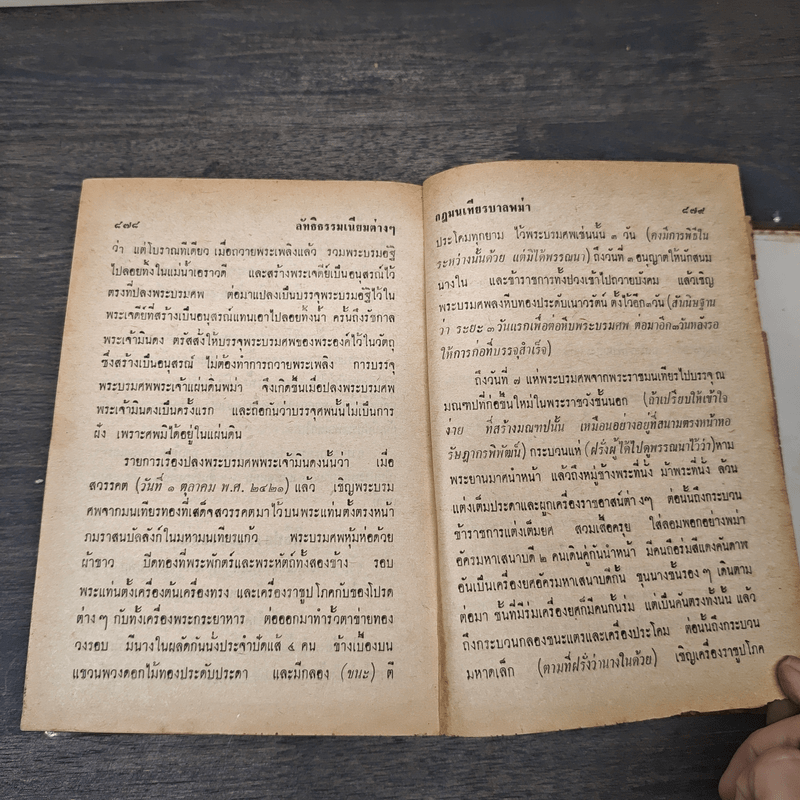 ๔๗๘ ลัทธิธรรมเนียมต่างๆ
ว่า แต่โบราณทีเดียว เมื่อถวายพระเพลิงแล้ว รวมพระบรมอัฐิ
ไปลอยทั้งในแม่น้ำเอราวดี และสร้างพระเจดีย์เป็นอนุสรณ์ไว้
ตรงที่ปลงพระบรมศพ ต่อมาแปลงเป็นบรรจุพระบรมอัฐิไว้ใน
พระเจดีย์ที่สร้างเป็นอนุสรณ์แทนเอาไปลอยทิ้งน้ำ ครั้นถึงรัชกาล
พระเจ้ามินดง ตรัสสั่งให้บรรจุพระบรมศพของพระองค์ไว้ในวัตถุ
ซึ่งสร้างเป็นอนุสรณ์ ไม่ต้องทำการถวายพระเพลิง การบรรจุ
พระบรมศพพระเจ้าแผ่นดินพม่า จึงเกิดขึ้นเมื่อปลงพระบรมศพ
พระเจ้ามินดงเป็นครั้งแรก และถือกันว่าบรรจุศพนั้นไม่เป็นการ
ฝัง เพราะศพมิได้อยู่ในแผ่นดิน
รายการเรื่องปลงพระบรมศพพระเจ้ามินดงนั้นว่า เมื่อ
สวรรคต (วันที่ ๑ ตุลาคม พ.ศ. ๒๔๒๑) แล้ว เชิญพระบรม
ศพจากมนเทียรทองที่เสด็จสวรรคตมาไว้บนพระแท่นตั้งตรงหน้า
ภมราสนบัลลังก์ในมหามนเทียรแก้ว พระบรมศพหุ้มห่อด้วย
ผ้าขาว ปิดทองที่พระพักตร์และพระหัตถ์ทั้งสองข้าง รอบ
พระแท่นตั้งเครื่องต้นเครื่องทรง และเครื่องราชูปโภคกับของโปรด
ต่างๆ กับทั้งเครื่องพระกระยาหาร ต่อออกมาทำรั้วตาข่ายทอง
วงรอบ มีนางในผลัดกันนั่งประจำปัดแส้ ๔ คน ข้างเบื้องบน
แขวนพวงดอกไม้ทองประดับประดา และมีกลอง (ชนะ) ตี
กฎมนเทียรบาลพม่า ๔๗๙
ประโคมทุกยาม ไว้พระบรมศพเช่นนั้น ๓ วัน (คงมีการพิธีใน
ระหว่างนั้นด้วย แต่มิได้พรรณนา) ถึงวันที่ ๓ อนุญาตให้นักสนม
นางใน และข้าราชการทั้งปวงเข้าไปถวายบังคม แล้วเชิญ
พระบรมศพลงหีบทองประดับเนาวรัตน์ ตั้งไว้อีก๓วัน (สันนิษฐาน
ว่า ระยะ ๓ วันแรกเพื่อต่อหีบพระบรมศพ ต่อมาอีก๓วันหลังรอ
ให้การก่อที่บรรจุสำเร็จ)
ถึงวันที่ ๗ แห่พระบรมศพจากพระราชมนเทียรไปบรรจุ ณ
มณฑปที่ก่อขึ้นใหม่ในพระราชวังชั้นนอก (ถ้าเปรียบให้เข้าใจ
ง่าย ที่สร้างมณฑปนั้น เหมือนอย่างอยู่ที่สนามตรงหน้าหอ
รัษฎากรพิพัฒน์) กระบวนแห่ (ฝรั่งผู้ได้ไปดูพรรณนาไว้ว่า) หาม
พระยานมาศนำหน้า แล้วถึงหมู่ช้างพระที่นั่ง ม้าพระที่นั่ง ล้วน
แต่งเต็มประดาและผูกเครื่องราชอาสน์ต่างๆ ต่อนั้นถึงกระบวน
ข้าราชการแต่งเต็มยศ สวมเสื้อครุย ใส่ลอมพอกอย่างพม่า
อัครมหาเสนาบดี ๒ คนเดินคู่กันนำหน้า มีคนถือร่มสีแดงคันดาพ
อันเป็นเครื่องยศอัครมหาเสนาบดีกั้น ขุนนางชั้นรองๆ เดินตาม
ต่อมา ชั้นที่มีร่มเครื่องยศก็มีคนกั้นร่ม แต่เป็นคันตรงทั้งนั้น แล้ว
ถึงกระบวนกลองชนะแตรและเครื่องประโคม ต่อนั้นถึงกระบวน
มหาดเล็ก (ตามที่ฝรั่งว่านางในด้วย) เชิญเครื่องราชูปโภค